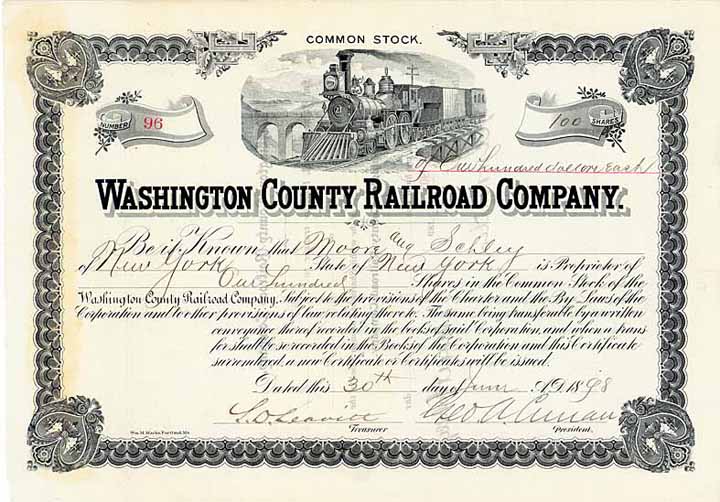 COMMON STOCK.
NUMBER 96
100 SHARES
of One hundred dollars Each
WASHINGTON COUNTY RAILROAD COMPANY.
Be it Known that Moore and Schley
of New York State of New York is Proprietor of
One hundred Shares in the Common Stock of the
Washington County Railroad Company, Subject to the provisions of the Charter and the By-Laws of the
Corporation and to other provisions of law relating thereto. The same being transferable by a written
conveyance thereof recorded in the books of said Corporation, and when a trans
fer shall be so recorded in the Books of the Corporation and this Certificate
surrendered, a new Certificate or Certificates will be issued.
Dated this 30th day of June A.D. 1898
Treasurer
President.
Wm. M. Marks, Portland, Me.